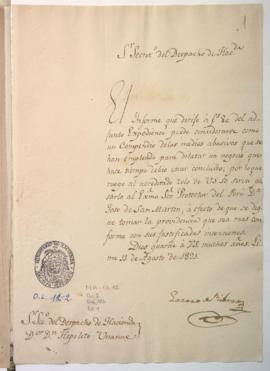 Sr. Secret.o del Despacho de Hac.da
El Informe que
adjunto Expediente puede considerarse como
un Compendio de los medios abusivos que se
han empleado para dilatar un negocio que
hace tiempo debio estar concluido; por lo que
ruego al acreditado zelo de VS se sirva pa
sarlo al Exmo. Sor. Protector del Perú Dn.
Jose de San Martin, á efecto de que se dig
ne tomar la providencia que sea mas con
forme con sus justificadas intenciones.
Dios guarde á VS muchos años. Li
ma 11 de Agosto de 1821.
O.L. 18-2
Sr. Sio. del Despacho de Hacienda
Dor. Dn. Hipolito Unanue